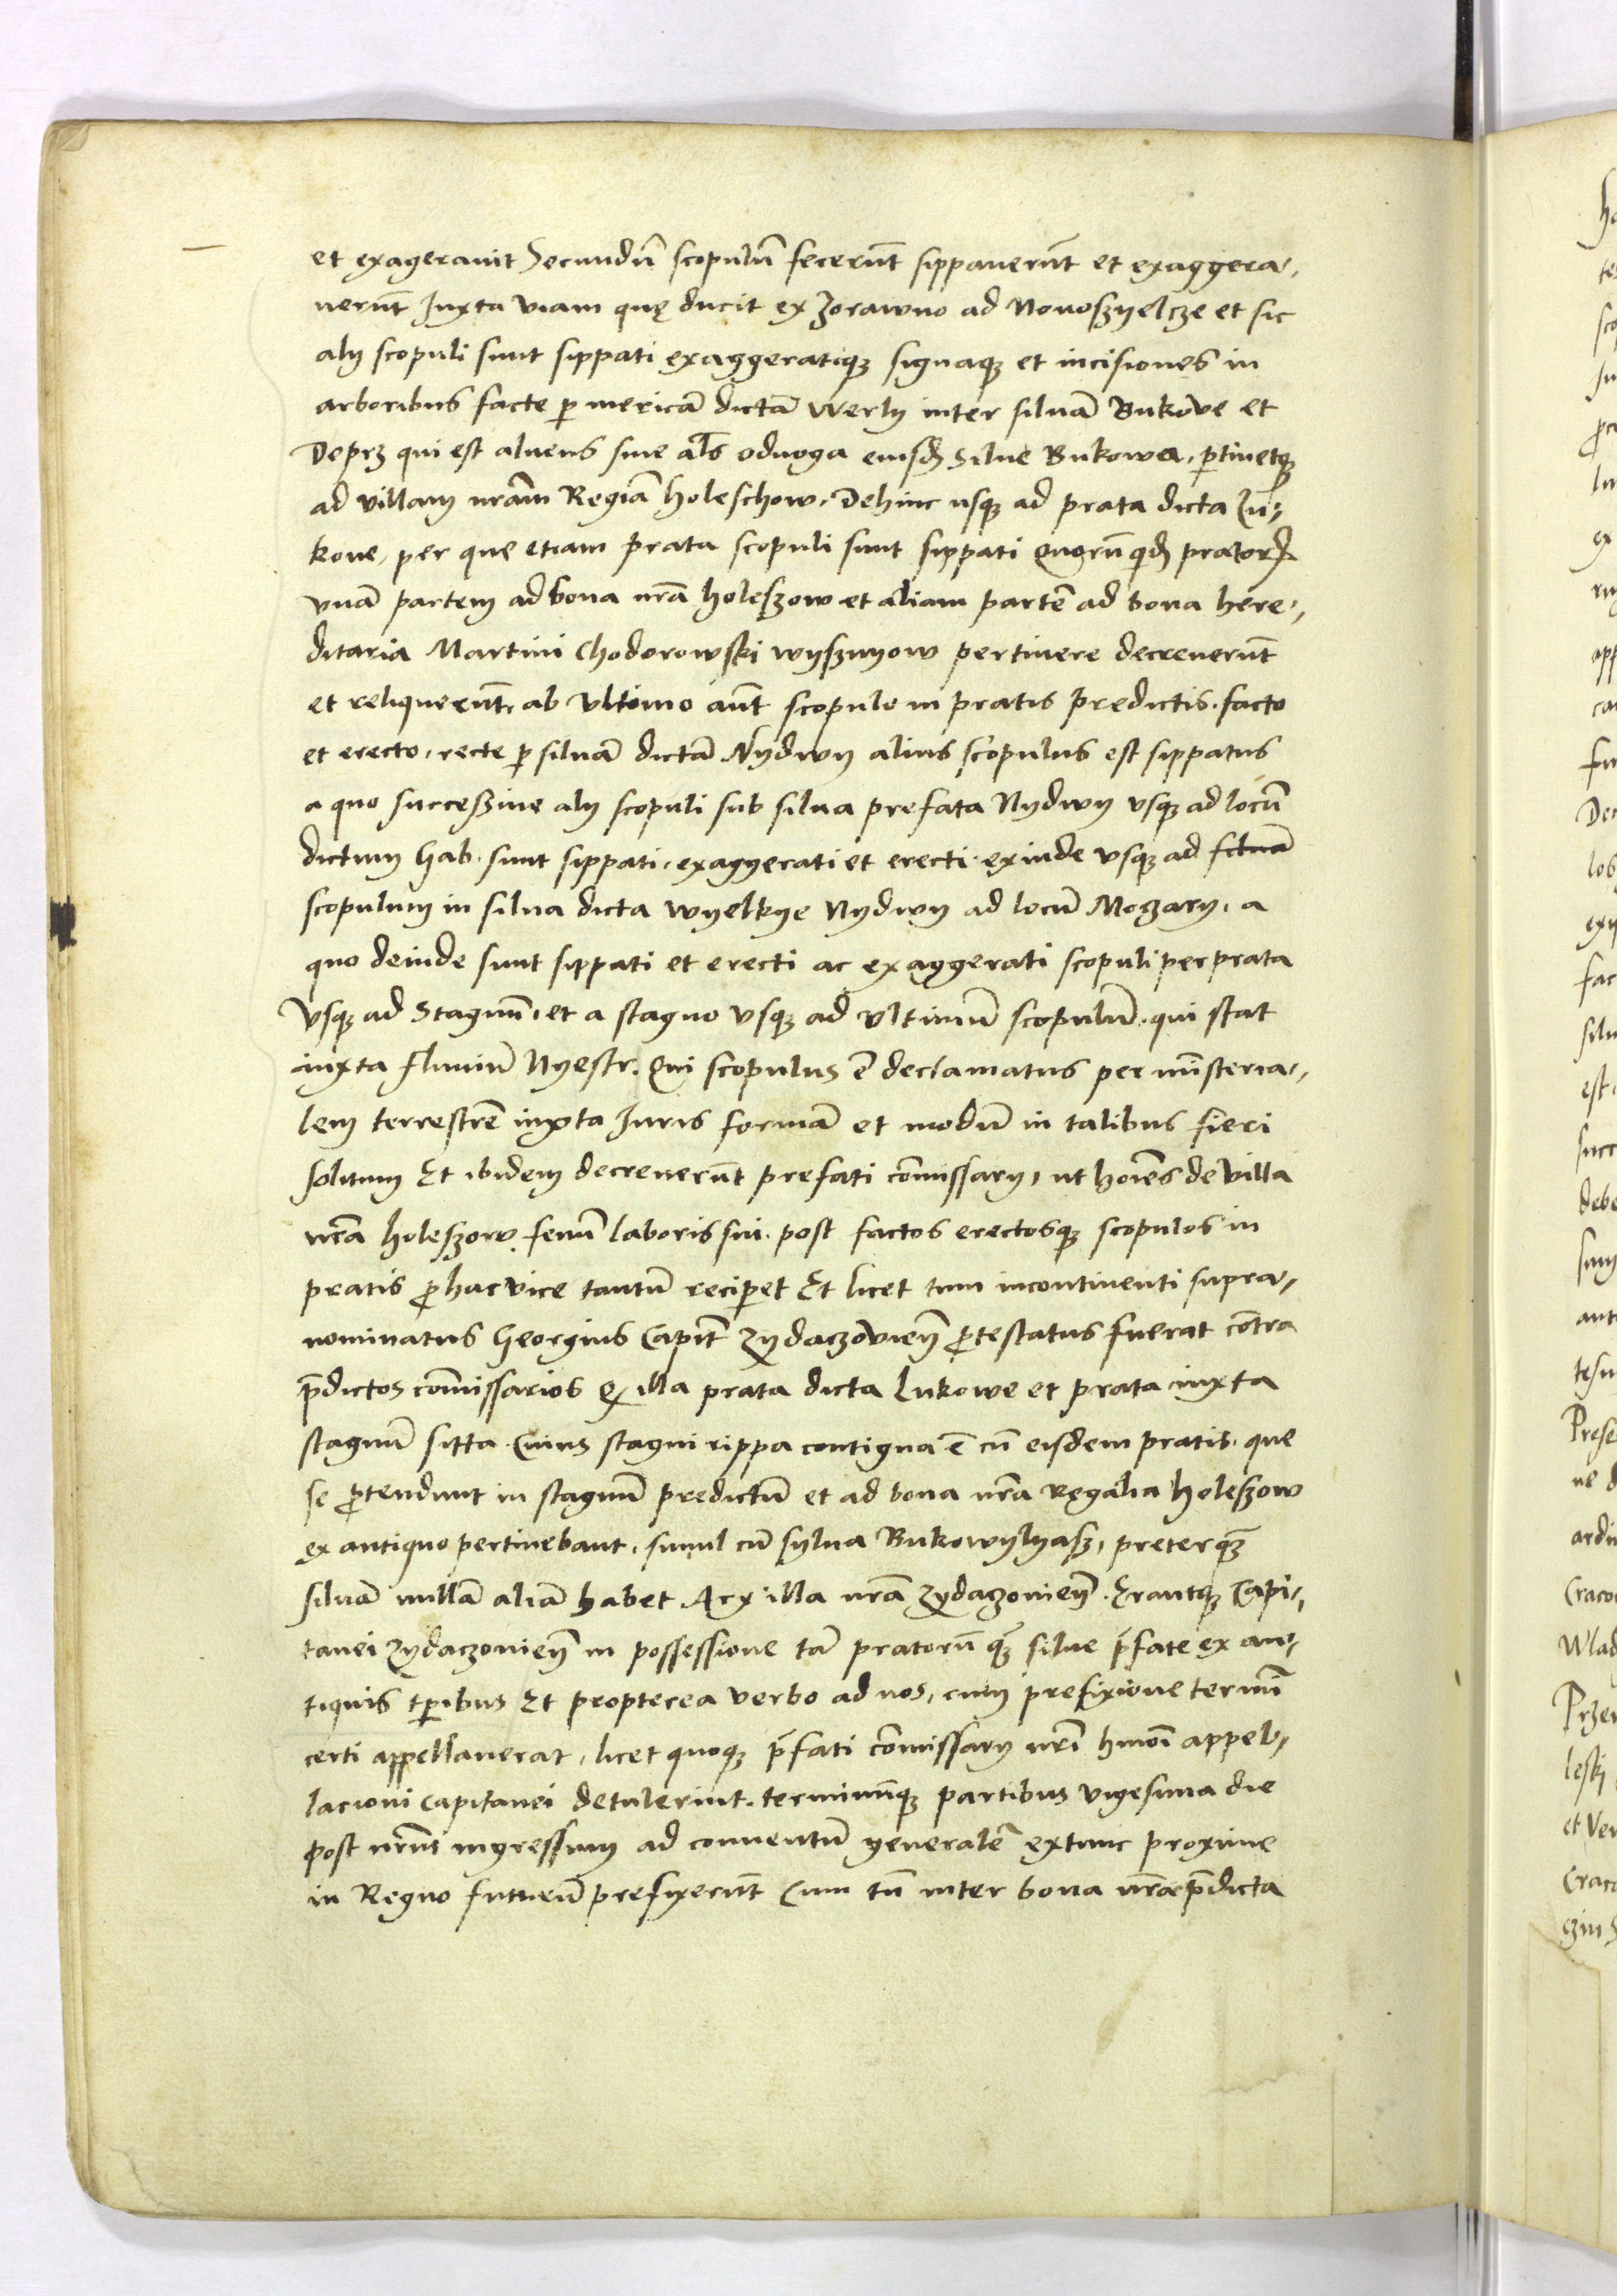 et exageravit Secundu͂ scopulu͂ fecerūt sippauerūt et exaggera-
uerūt Juxta viam quę ducit ex Zorawno ad Nouoszyelcze et sic
alij scopuli sunt sippati exaggeratiqꝫ signaqꝫ et incisiones in
arboribus facte ꝑ mericā dictā werly inter siluā Bukove et
Deprz qui est alueus siue al̄s odnoga eiusd̄ Silue Bukowa, ꝑtinetqꝫ
ad villam nrām Regiā holeschow. Dehinc usqꝫ ad prata dicta Lu-
kove, per que etiam prata scopuli sunt sippati Quorū qd̄ pratorꝝ
vnā partem ad bona nrā holeszow et aliam partē ad bona here-
ditaria Martini Chodorowski wysznyow pertinere decreuerūt
et reliquerūt, ab vltimo aūt scopulo in pratis predictis facto
et erecto, recte ꝑ siluā dictā Nydwy alius scopulus est sippatus
a quo successiue alij scopuli sub silua prefata Nydwy vsqꝫ ad locū
dictum hab. sunt sippati, exaggerati et erecti. exinde vsqꝫ ad siluā
scopulum in silua dicta wyelkye Nydwy ad locū Mogary, a
quo deinde sunt sippati et erecti ac exaggerati scopuli per prata
vsqꝫ ad Stagnū, et a stagno vsqꝫ ad vltimū scopulū. qui stat
iuxta fluuiū Nyestr. Qui scopulus ē declamatus per mīsteria-
lem terrestrē iuxta Juris formā et modū in talibus fieri
solitum Et ibidem decreuerūt prefati cōmissarij, ut hoīes de villa
nrā holeszow fenū laboris sui. post factos erectosqꝫ scopulos in
pratis ꝓ hac vice tantū reciꝑet Et licet tum incontinenti supra-
nominatus Georgius Capit̄ Zydaczovień ꝓtestatus fuerat cōtra
p̄dictos cōmissarios Qꝫ illa prata dicta Lukowe et prata iuxta
stagnū sitta. Cuius stagni rippa contigua ē cū eisdem pratis. que
se ꝓtendunt in stagnū predictū et ad bona nrā Regalia holeszow
ex antiquo pertinebant, simul cū sylua Bukowylyasz, preterqꝫ̄
siluā nullā aliā habet Arx illa nrā Zydaczonień. Erantqꝫ Capi-
tanei Zydaczonień in possessione tā pratorū qꝫ̄ silue p̄fate ex an-
tiquis tꝑibus Et propterea verbo ad nos, cum prefixione termī
certi appellauerat, licet quoqꝫ p̄fati cōmissarij nrī hmōi appel-
lacioni Capitanei detulerint. terminūqꝫ partibus vigesima die
post nrūm ingressum ad conuentū generalē extunc proxime
in Regno futurū prefixerūt Cum tn̄ inter bona nrā p̄dicta